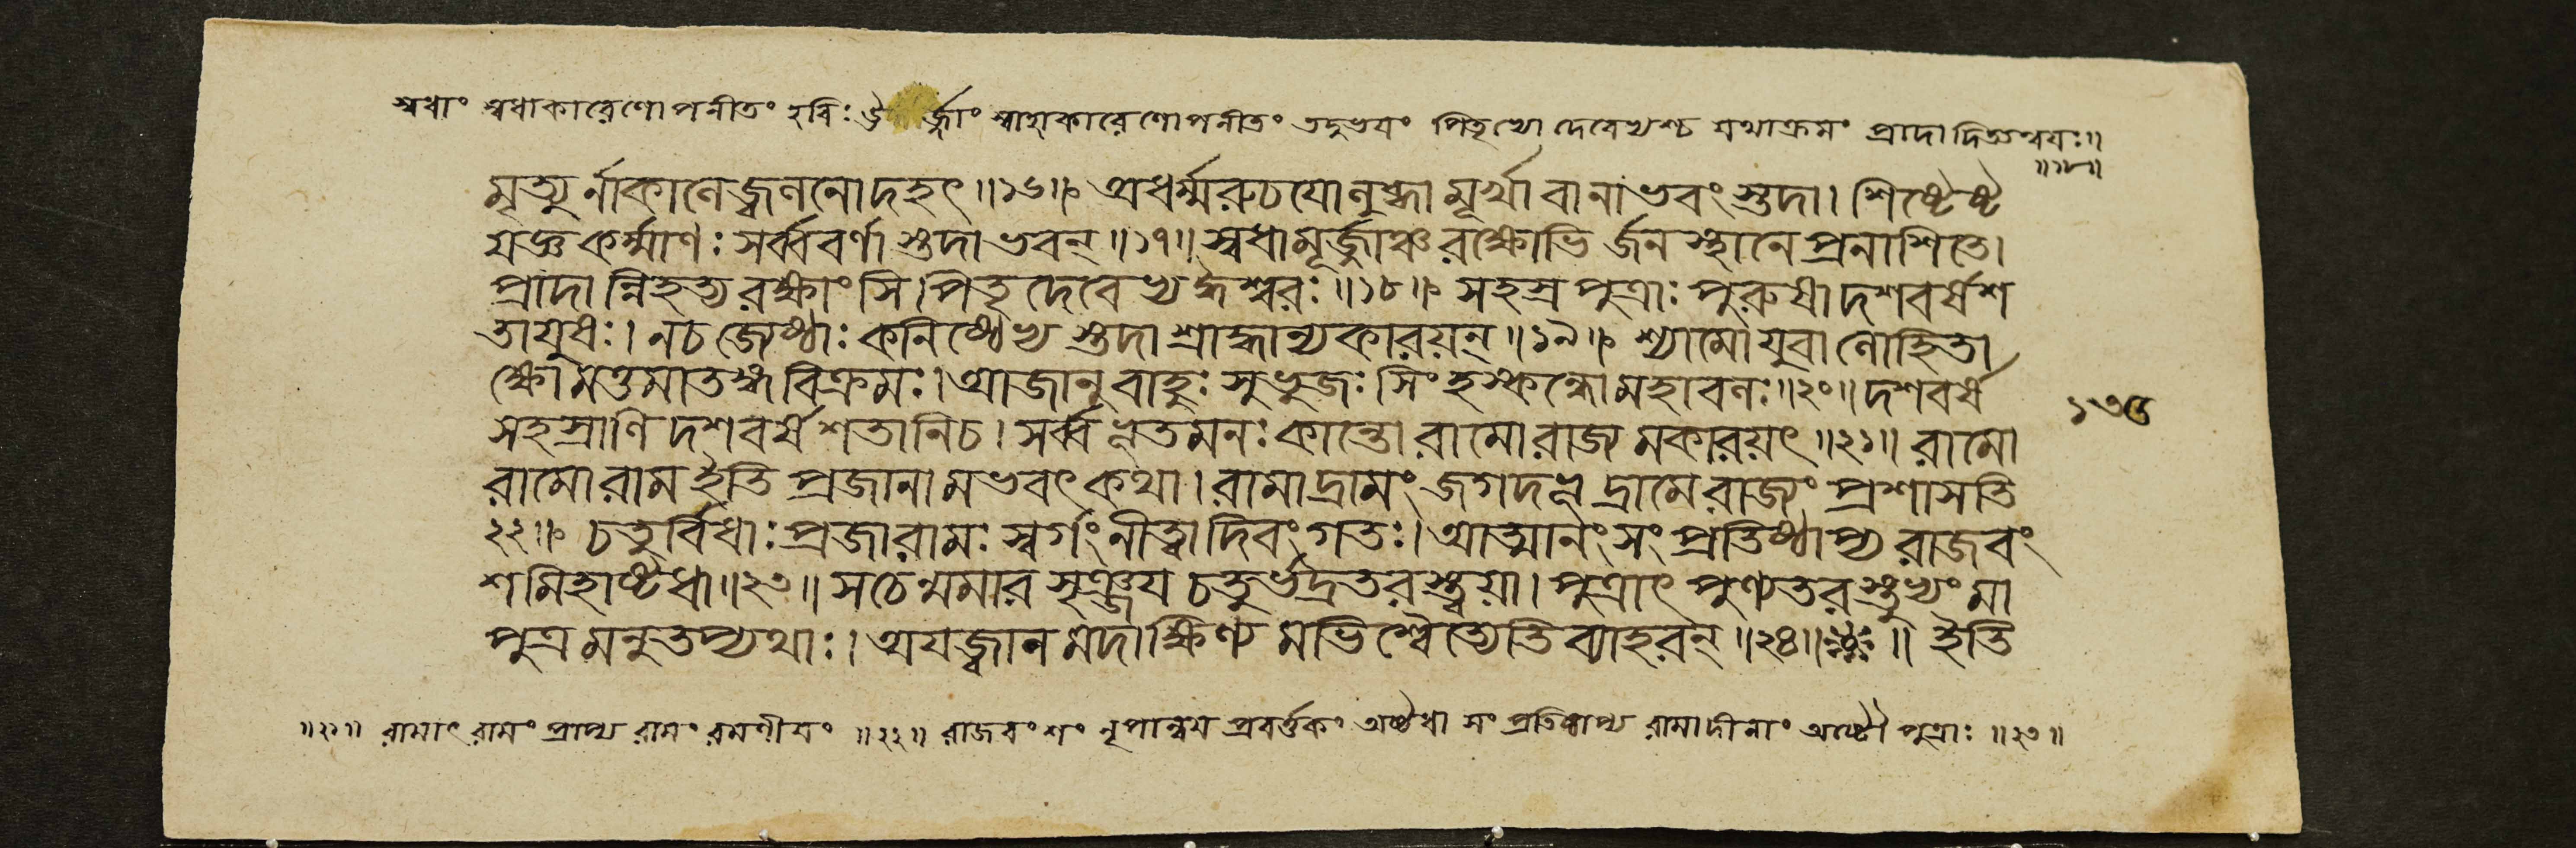 স্বধাং স্বধাকারেণোপনীতং হবিঃ ঊর্জ্জাং স্বাহাকারেণোপনীতং তদুভয়ং পিতৃভ্যো দেবেভ্যশ্চ যথাক্রমং প্রাদাদিত্যন্বয়ঃ॥
॥১৮॥
মৃত্যুর্নাকালেজ্বলনোদহৎ॥১৬॥ অধর্ম্মরুচযোলুব্ধামূর্খাবানাভবংস্তুদা। শিষ্টেষ্ট
যজ্ঞকর্ম্মাণঃ সর্ব্ববর্ণাস্তুদাভবন্॥১৭॥ স্বধামূর্জ্জাঞ্চরক্ষোভির্জনস্থানেপ্রনাশিতে।
প্রাদান্নিহত্যরক্ষাংসি পিতৃদেবেভ্যঈশ্বরঃ॥১৮॥ সহস্রপুত্রাঃ পুরুষাদশবর্ষশ
তাযুষঃ। নচজ্যেষ্ঠাঃ কনিষ্ঠেভ্যস্তুদাশ্রাদ্ধান্যকারয়ন্॥১৯॥ শ্যামোযুবালোহিতা
ক্ষোমত্তমাতঙ্গবিক্রমঃ। আজানুবাহুঃ সুভুজঃ সিংহস্কন্ধোমহাবলঃ॥২০॥ দশবর্ষ
সহস্রাণি দশবর্ষশতানিচ। সর্ব্বভূতমনঃকান্তোরামোরাজ্যমকারয়ৎ॥২১॥ রামো
রামোরামইতি প্রজানামভবৎকথা। রামাদ্রামংজগদভূদ্রামেরাজ্যং প্রশাসতি
২২॥ চতুর্বিধাঃ প্রজারামঃ স্বর্গংনীত্বাদিবংগতঃ। আত্মানংসংপ্রতিষ্ঠাপ্যরাজবং
শমিহাষ্টধা॥২৩॥ সচেন্মমারসৃঞ্জযচতুর্ভদ্রতরস্ত্বয়া। পুত্রাৎ পুণ্যতরস্তুভ্যংমা
পুত্রমনুতপ্যথাঃ। অযজ্বানমদাক্ষিণ্যমভিশ্বৈত্যেতিব্যাহরন্॥২৪॥ ॥ ইতি
১৩৫
॥২১॥ রামাৎ রামং প্রাপ্য রামং রমণীয়ং ॥২২॥ রাজবংশং নৃপান্বয়প্রবর্ত্তকং অষ্টধা সংপ্রতিষ্ঠাপ্য রামাদীনাং অষ্টৌ পুত্রাঃ ॥২৩॥